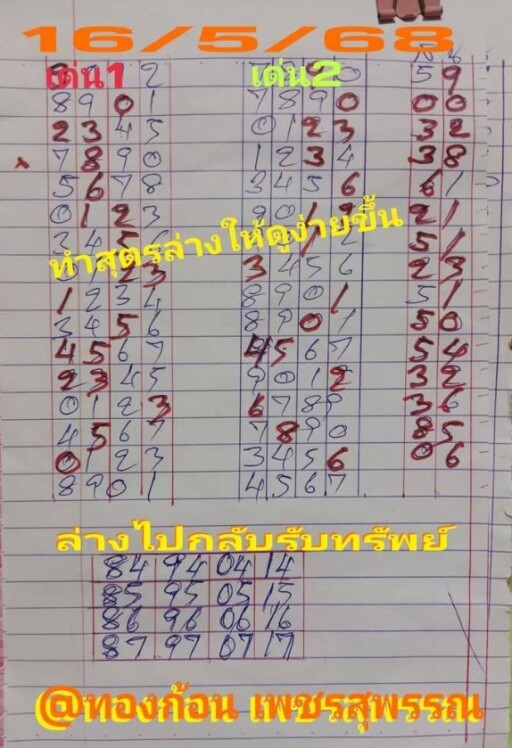 16/5/68
เด่น1 2 เด่น2 0 5 9
8 9 0 1 7 8 9 0 0 0
2 3 4 5 0 1 2 3 3 2
x 7 8 9 0 1 2 3 4 3 8
5 6 7 8 3 4 5 6 6 1
0 1 2 3 9 0 1 2 2 1
3 4 5 6 2 5 1
ทำสูตรล่างให้ดูง่ายขึ้น
2 3 3 4 5 6 2 3
1 2 3 4 8 9 0 1 5 1
3 4 5 6 8 9 0 1 5 0
4 5 6 7 4 5 6 7 5 4
2 3 4 5 9 0 1 2 3 2
0 1 2 3 6 7 8 9 3 6
4 5 6 7 7 8 9 0 8 5
0 1 2 3 3 4 5 6 0 6
8 9 0 1 4 5 6 7
ล่างไปกลับรับทรัพย์
84 94 04 14
85 95 05 15
86 96 06 16
87 97 07 17
@ทองก้อน เพชรสุพรรณ